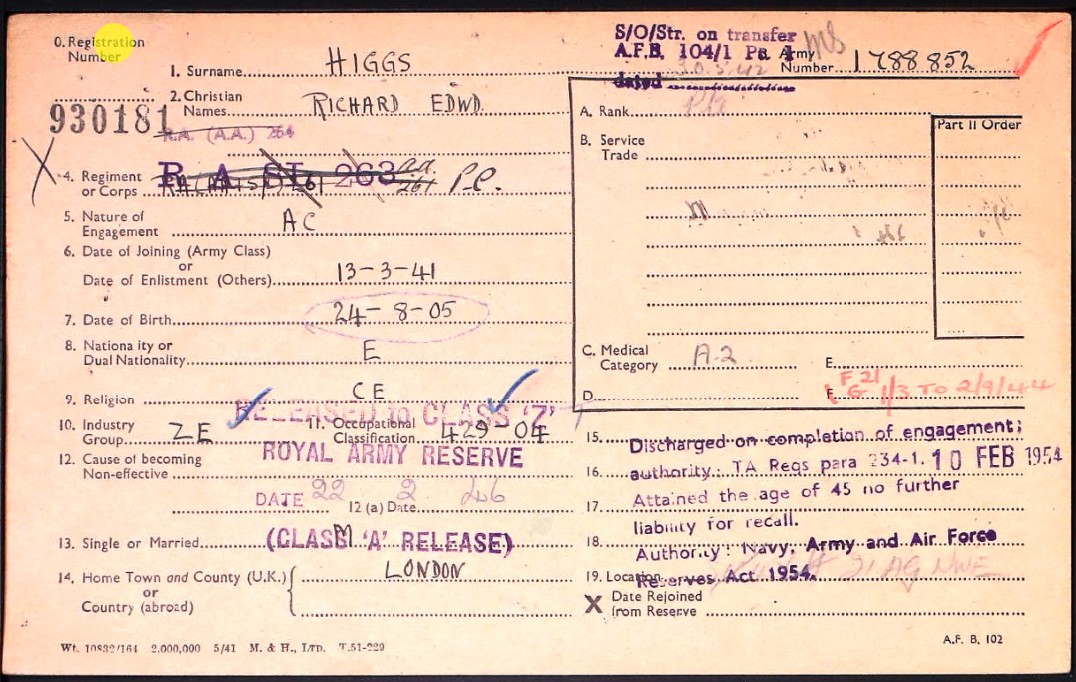 0. Registration Number
930181
S/O/Str. on transfer
A.F.B. 104/1 Pt. 1
dated
Army Number 1788852
1. Surname HIGGS
2. Christian Names RICHARD EDWD.
R.A. (A.A.) 264
4. Regiment or Corps R A 263 261 P.C.
5. Nature of Engagement AC
6. Date of Joining (Army Class)
or
Date of Enlistment (Others) 13-3-41
7. Date of Birth 24-8-05
8. Nationality or Dual Nationality E
9. Religion CE
RELEASED to CLASS 'Z'
10. Industry Group ZE
11. Occupational Classification 429-04
ROYAL ARMY RESERVE
12. Cause of becoming Non-effective
DATE 22 2 46
12 (a) Date
13. Single or Married M
(CLASS 'A' RELEASE)
14. Home Town and County (U.K.) LONDON
or
Country (abroad)
Wt. 10832/164 2,000,000 5/41 M. & H., LTD. T.51-229
A. Rank
B. Service Trade
Part II Order
C. Medical Category A.2
D.
E.
F. F 21 G 1/3 TO 2/9/44
15. Discharged on completion of engagement;
16. authority: TA Regs para 234-1. 10 FEB 1954
17. Attained the age of 45 no further
liability for recall.
18. Authority: Navy, Army and Air Force
Reserves Act 1954.
19. Location 21 AG NWE
X Date Rejoined from Reserve
A.F. B. 102